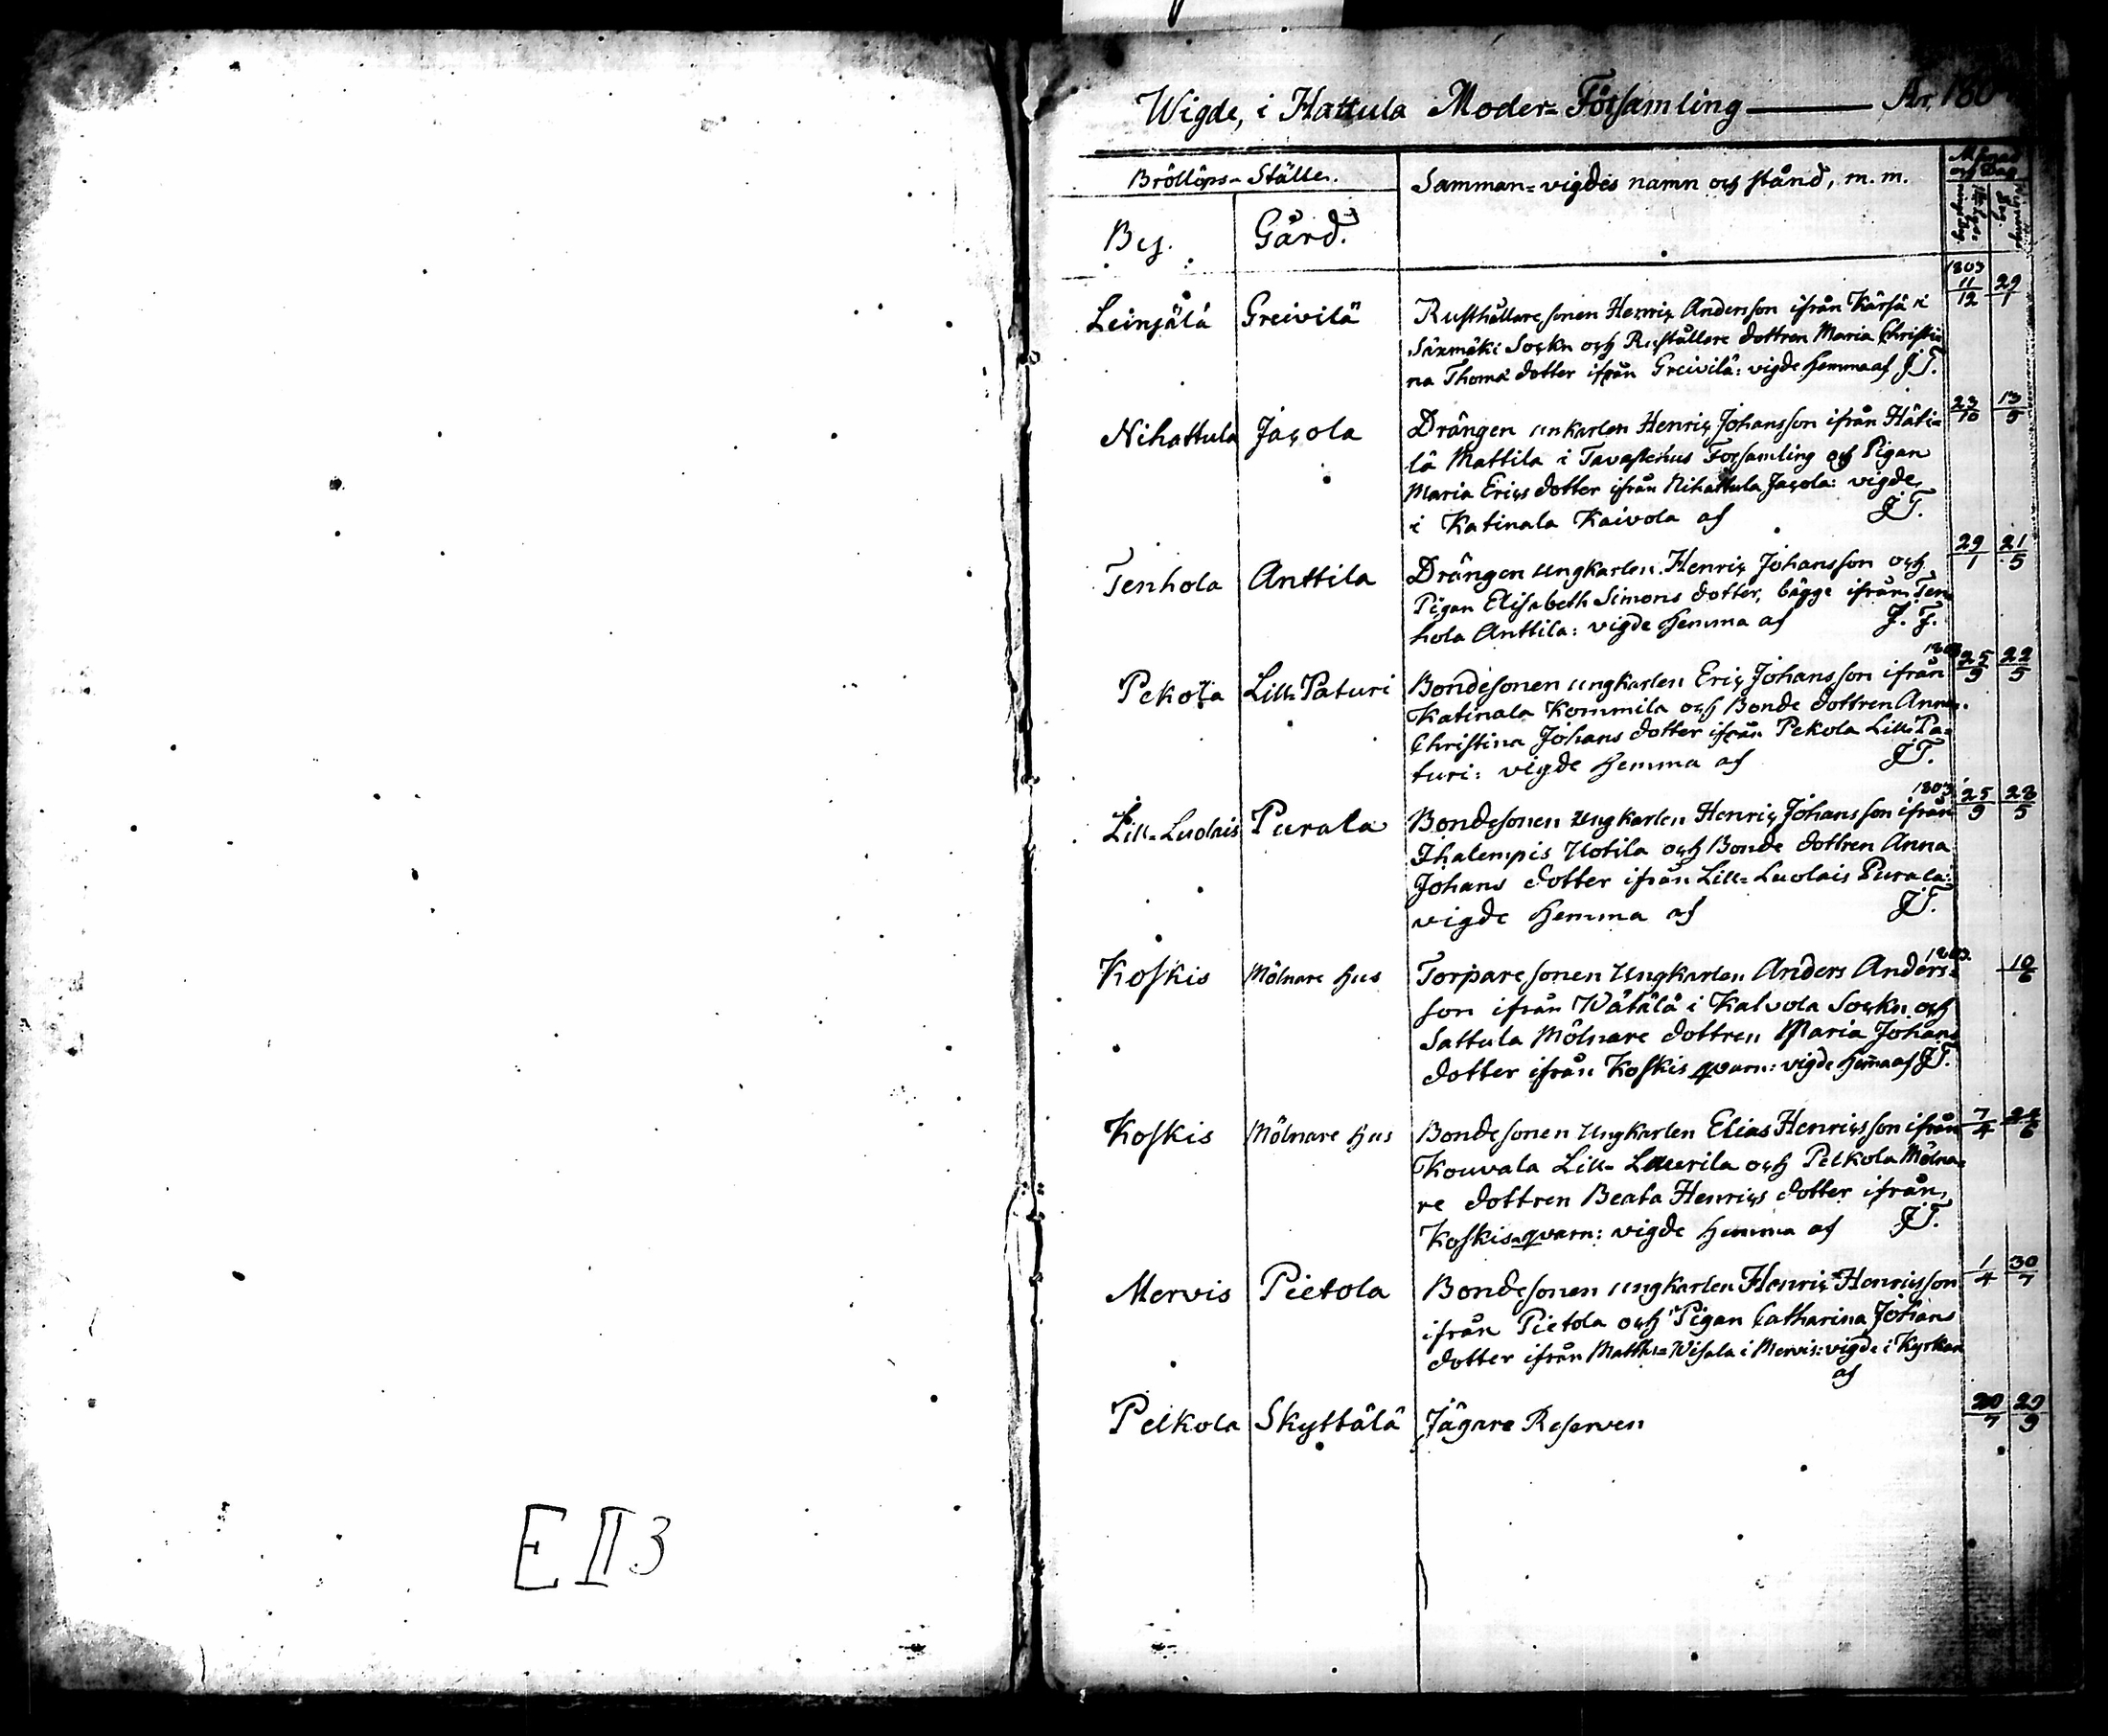 E II 3
Wigde, i Hattula Moder=Församling —— År, 180
Bröllops=Ställe.
Samman=vigdes namn och stånd, m. m.
Månad och Dag
By.
Gård.
Leinjälä
Greivilä
Rusthållare sonen Henric Andersson ifrån
Säxmäki Sockn och Rusthållare dottren Maria Christi=
na Thomæ dotter ifrån Greivilä: vigde hemma af J T.
1803 11/12
29/1
Nihattula
Jacola
Drängen unkarlen Henric Johansson ifrån Häti=
lä Mattila i Tavastehus Församling och Pigan
Maria Erics dotter ifrån Nihattula Jacola: vigde
i Katinala Kaivola af J T.
23/10
13/5
Tenhola
Anttila
Drängen ungkarlen Henric Johansson och
Pigan Elisabeth Simons dotter, bägge ifrån Ten=
hola Anttila: vigde hemma af J. T.
29/1
21/5
Pekola
Lill=Paturi
Bondesonen ungkarlen Eric Johansson ifrån
Katinala Kommila och Bonde dottren Anna
Christina Johans dotter ifrån Pekola Lill=Pa=
turi: vigde hemma af J T.
1803 25/9
22/5
Lill=Luolais
Purala
Bondesonen Ungkarlen Henric Johansson ifrån
Ihalempis Uotila och Bonde dottren Anna
Johans dotter ifrån Lill=Luolais Purala:
vigde hemma af J T.
1803 25/9
28/5
Koskis
Mölnare hus
Torpare sonen Ungkarlen Anders Anders=
son ifrån Wätälä i Kalvola Sockn och
Sattula Mölnare dottren Maria Johans
dotter ifrån Koskis qvarn: vigde hemma af J T.
1803.
10/6
Koskis
Mölnare hus
Bondesonen Ungkarlen Elias Henricsson ifrån
Kouvala Lill=Laurila och Pelkola Mölna=
re dottren Beata Henrics dotter ifrån
Koskis=qvarn: vigde hemma af J T.
7/4
24/6
Mervis
Pietola
Bondesonen ungkarlen Henric Henricsson
ifrån Pietola och Pigan Catharina Johans
dotter ifrån Matthis=Wisala i Mervis: vigde i Kyrkan
af
1/4
30/7
Pelkola
Skyttälä
Jägare Reserven
20/7
29/9